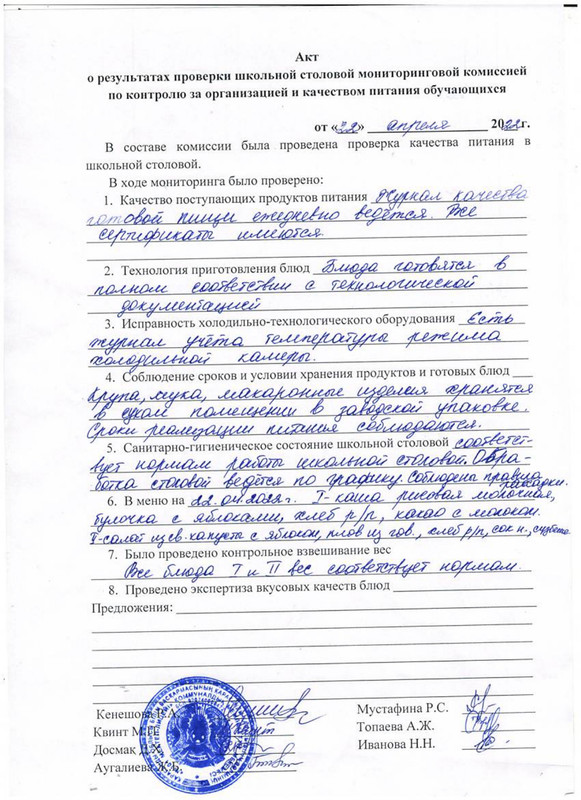 Акт
о результатах проверки школьной столовой мониторинговой комиссией
по контролю за организацией и качеством питания обучающихся
от «22» апреля 2022г.
В составе комиссии была проведена проверка качества питания в
школьной столовой.
В ходе мониторинга было проверено:
1. Качество поступающих продуктов питания Журнал качества
готовой пищи ежедневно ведётся. Все
сертификаты имеются.
2. Технология приготовления блюд Блюда готовятся в
полном соответствии с технологической
документацией
3. Исправность холодильно-технологического оборудования Есть
журнал учёта температуры режима
холодильной камеры.
4. Соблюдение сроков и условии хранения продуктов и готовых блюд
Крупа, мука, макаронные изделия хранятся
в сухом помещении в заводской упаковке.
Сроки реализации питания соблюдаются.
5. Санитарно-гигиеническое состояние школьной столовой соответст-
вует нормам работы школьной столовой. Обра-
ботка столовой ведётся по графику. Соблюдены правила
6. В меню на 22.04.2022г. I-каша рисовая молочная,
булочка с яблоками, хлеб р/п, какао с молоком.
II-салат из св. капусты с яблоком, плов из гов., хлеб р/п, сок н.,
7. Было проведено контрольное взвешивание вес
Все блюда I и II вес соответствует нормам.
8. Проведено экспертиза вкусовых качеств блюд
Предложения:
Кенешова Мустафина Р.С.
Квинт М. Топаева А.Ж.
Досмак Иванова Н.Н.
Аугалиева Ж.